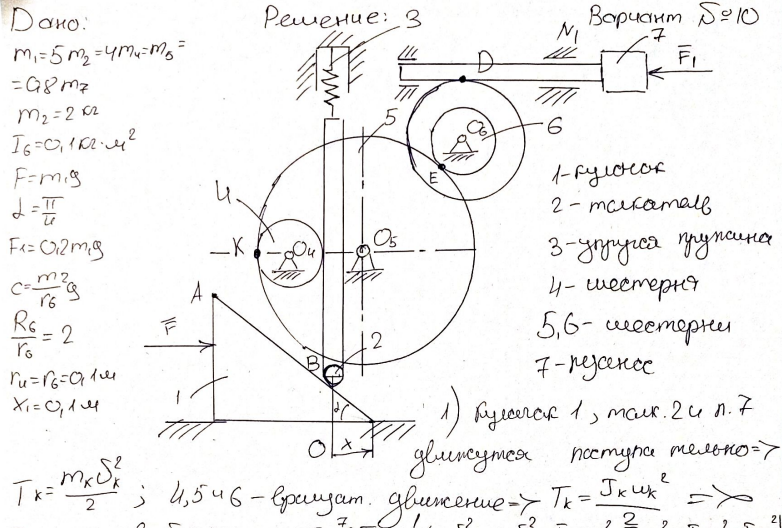 Дано:
m₁=5m₂=4m₄=m₅=
=0,8m₇
m₂=2 кг
I₆=0,1кг·м²
F=m₁g
α=π/4
F₁=0,2m₁g
c=m₂/r₆ g
R₆/r₆=2
r₄=r₆=0,1м
x₁=0,1м
Решение:
Вариант №10
3
N₁
7
D
F̄₁
5
O₆
6
E
4
K
O₄
O₅
A
F̄
B
2
1
α
O
x
1-кулачок
2-толкатель
3-упругая пружина
4-шестерня
5,6-шестерни
7-
1) Кулачок 1, толк. 2 и п. 7
движутся поступательно=>
Tₖ=mₖϑₖ²/2 ; 4,5 и 6-вращат. движение=> Tₖ=Jₖωₖ²/2 =>